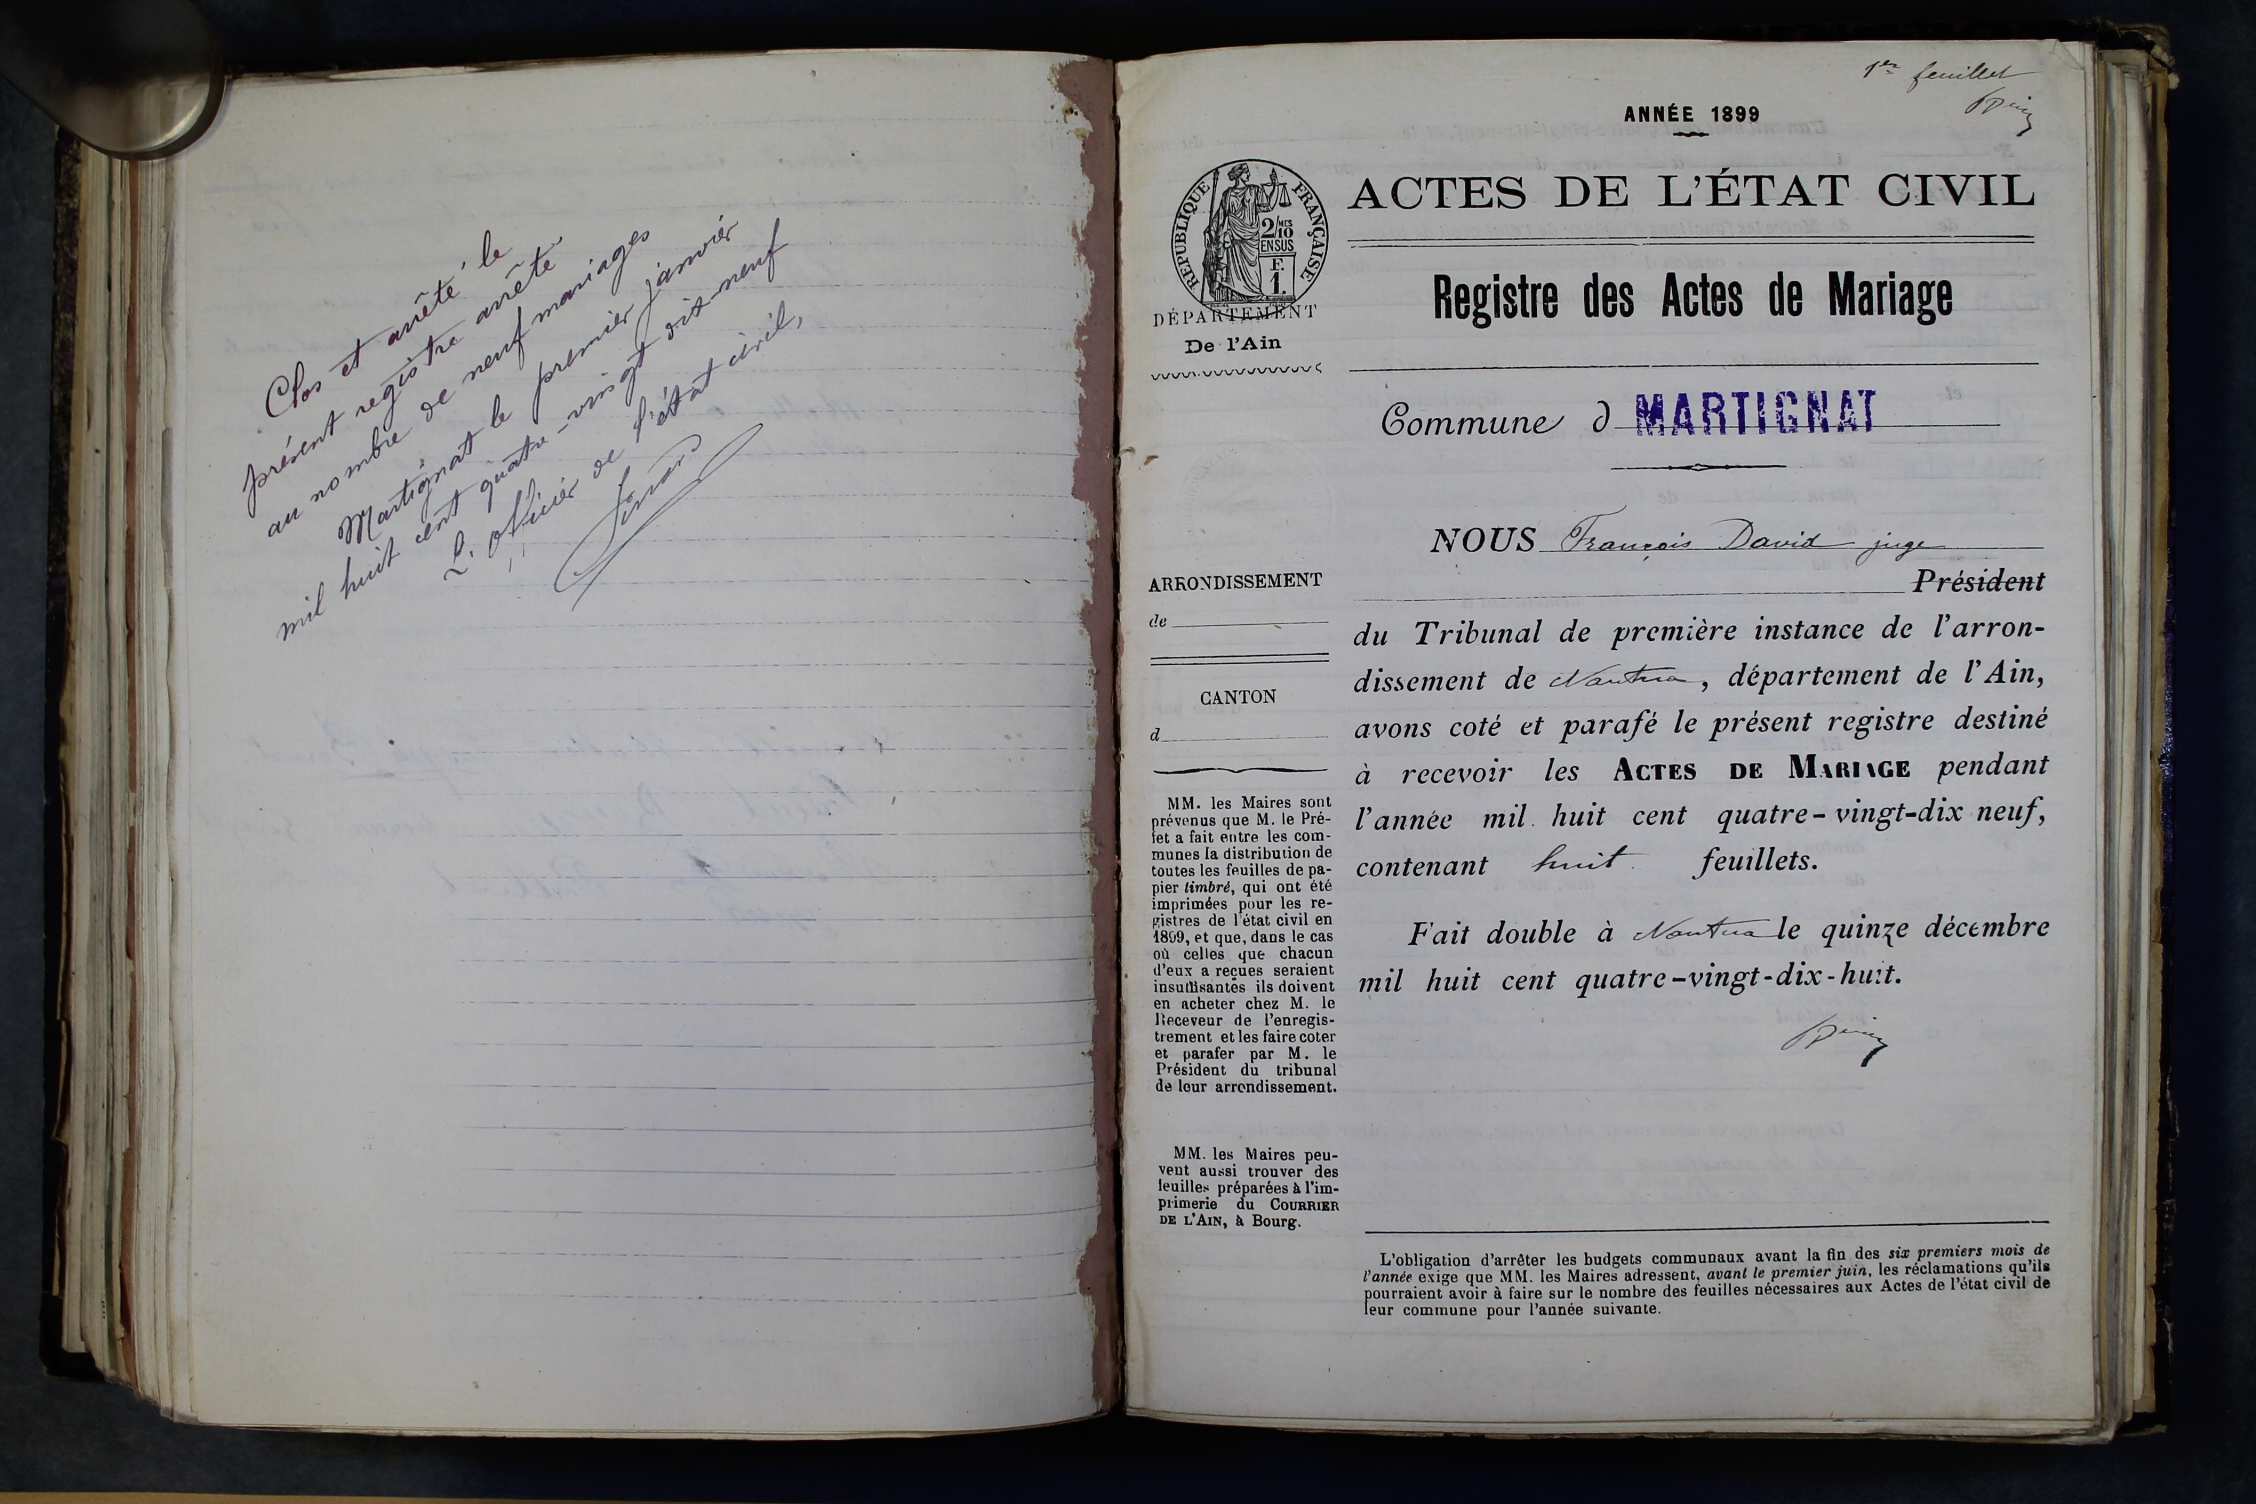 Clos et arrêté le
présent registre arrêté
au nombre de neuf mariages
Martignat le premier janvier
mil huit cent quatre-vingt dix-neuf
L'officier de l'état civil,
1er feuillet
ANNÉE 1899
RÉPUBLIQUE FRANÇAISE
2/10 MES
EN SUS
F.
1.
DÉPARTEMENT
De l'Ain
ACTES DE L'ÉTAT CIVIL
Registre des Actes de Mariage
Commune d MARTIGNAT
NOUS François David juge
Président
du Tribunal de première instance de l'arron-
dissement de Nantua, département de l'Ain,
avons coté et parafé le présent registre destiné
à recevoir les ACTES DE MARIAGE pendant
l'année mil huit cent quatre-vingt-dix neuf,
contenant huit feuillets.
Fait double à Nantua le quinze décembre
mil huit cent quatre-vingt-dix-huit.
ARRONDISSEMENT
de
CANTON
d
MM. les Maires sont
prévenus que M. le Pré-
fet a fait entre les com-
munes la distribution de
toutes les feuilles de pa-
pier timbré, qui ont été
imprimées pour les re-
gistres de l'état civil en
1899, et que, dans le cas
où celles que chacun
d'eux a reçues seraient
insuffisantes ils doivent
en acheter chez M. le
Receveur de l'enregis-
trement et les faire coter
et parafer par M. le
Président du tribunal
de leur arrondissement.
MM. les Maires peu-
vent aussi trouver des
feuilles préparées à l'im-
primerie du COURRIER
DE L'AIN, à Bourg.
L'obligation d'arrêter les budgets communaux avant la fin des six premiers mois de
l'année exige que MM. les Maires adressent, avant le premier juin, les réclamations qu'ils
pourraient avoir à faire sur le nombre des feuilles nécessaires aux Actes de l'état civil de
leur commune pour l'année suivante.